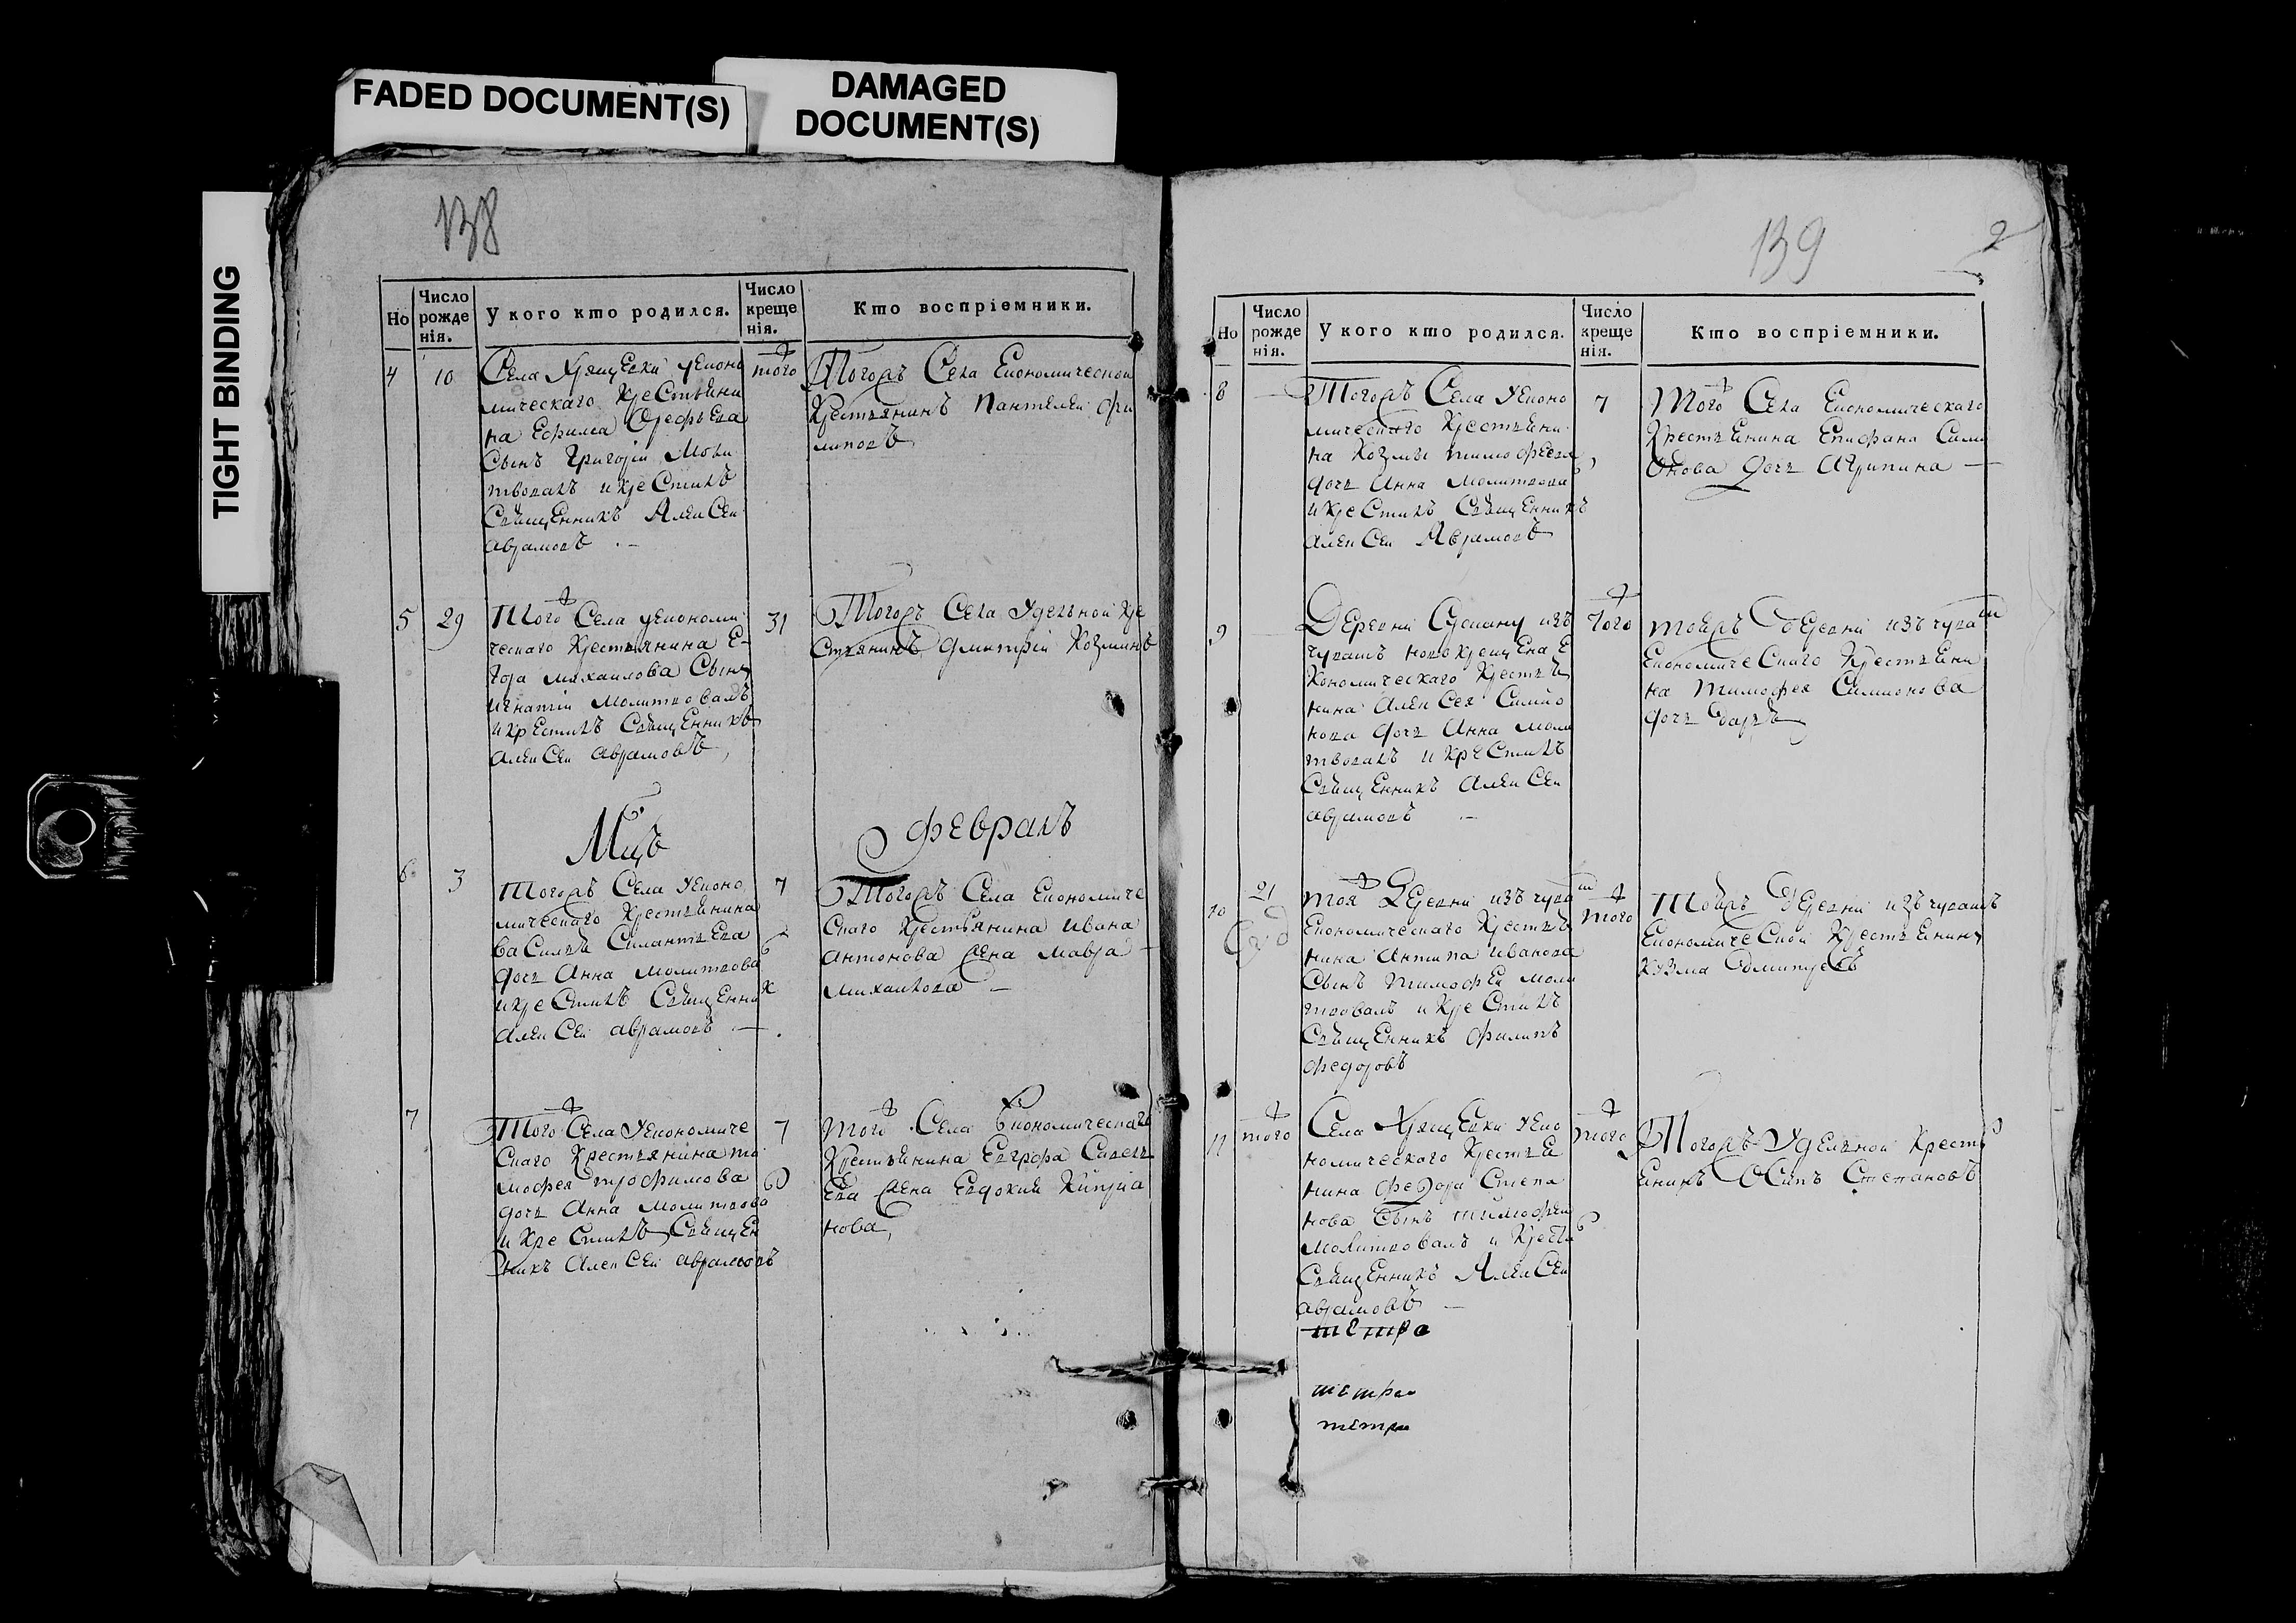 FADED DOCUMENT(S)
DAMAGED
DOCUMENT(S)
TIGHT BINDING
138
Но
Число рожде нія.
У кого кто родился.
Число креще нія.
Кто воспріемники.
4
10
Села Хрящевки уеконо
мическаго Крестьяни
на Ефима
Сынъ Григорій Моли
твовалъ и крестилъ
Священникъ Алексей
аврамовъ
того
Тогожъ Села Економической
Крестьянинъ Пантелей фи
липовъ
5
29
Того Села уекономи
ческаго Крестьянина Е
гора михаилова Сынъ
игнатій молитвовалъ
и крестилъ Священникъ
алексей аврамовъ
31
Тогожъ Села Удельной кре
стьянинъ дмитрій Козминъ
Мцъ
февраль
6
3
Тогожъ Села уеконо
мическаго Крестьянина
василья Силантьева
дочь Анна молитвова
и крестилъ Священник
алексей аврамовъ
7
Тогожъ Села Економиче
скаго Крестьянина ивана
антонова жена мавра
михаилова
7
Того Села уекономиче
скаго Крестьянина ти
мофея трофимова
дочь Анна молитвова
и крестилъ Священ
никъ алексей аврамовъ
7
того Села Економическаго
Крестьянина Евграфа Савель
ева жена Евдокия Кипрiа
нова
139
2
Но
Число рожде нія.
У кого кто родился.
Число креще нія.
Кто воспріемники.
8
Тогожъ Села уеконо
мическаго Крестьяни
на Козмы тимофеева
дочь Анна молитвова
и крестилъ Священникъ
алексей Аврамовъ
7
Того Села Економическаго
Крестьянина Епифана Сими
онова дочь Агрипина
9
Деревни изъ
чувашъ новокрещена е
кономическаго Крестья
нина алексея Симио
нова дочь Анна моли
твовалъ и крестилъ
Священникъ алексей
аврамовъ
того
тояжъ деревни изъ чуваш
економическаго Крестьяни
на тимофея Симионова
дочь дарья
10
21
тоя деревни изъ чуваш
економическаго Крестья
нина антипа иванова
Сынъ тимофей моли
твовалъ и крестилъ
Священникъ филипъ
федоровъ
того
Тояжъ деревни изъ чувашъ
економической Крестьянинъ
Кузма дмитреевъ
11
того
Села Хрящевки уеко
номическаго Крестья
нина федора Степа
нова Сынъ тимофей
молитвовалъ и Крести
Священникъ Алексей
аврамовъ
того
Тогожъ Удельной Кресть
янинъ Осипъ Степановъ